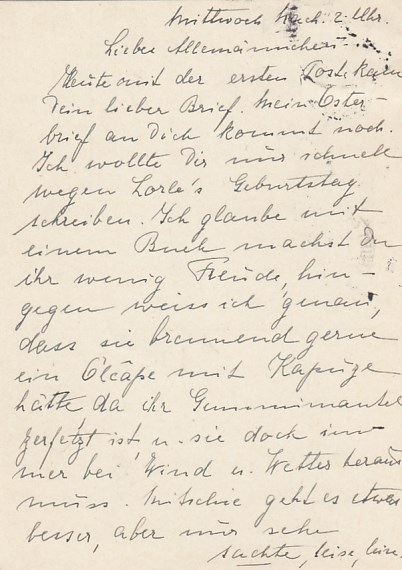 Mittwoch Nach. 2 Uhr.
Liebes Allemännchen -
Heute mit der ersten Post kam
Dein lieber Brief. Mein Oster-
brief an Dich kommt noch.
Ich wollte Dir nur schnell
wegen Lorle's Geburtstag
schreiben. Ich glaube mit
einem Buch machst du
ihr wenig Freude, hin-
gegen weiss ich genau,
dass sie brennend gerne
ein Ölcape mit Kapuze
hätte, da ihr Gummimantel
zerfetzt ist, u. sie doch im-
mer bei Wind u. Wetter heraus
muss. geht es etwas
besser, aber nur sehr
sachte, leise, leise.